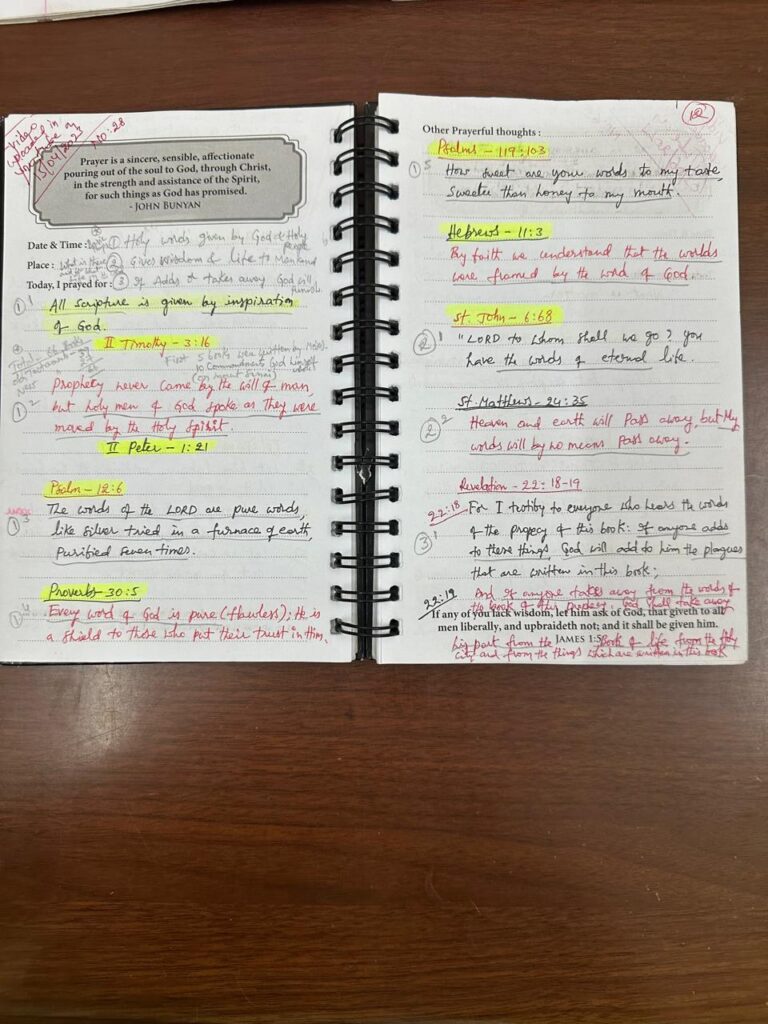 Video
uploaded in
on
15/04/2023
NO:28
Prayer is a sincere, sensible, affectionate
pouring out of the soul to God, through Christ,
in the strength and assistance of the Spirit,
for such things as God has promised.
- JOHN BUNYAN
Date & Time : ① Holy words given by God & Holy people
Place : ② Gives Wisdom & life to Mankind
Today, I prayed for : ③ If Adds or takes away God will
①1 All Scripture is given by inspiration
of God.
II Timothy - 3:16
First 5 books were written by
10 Commandments God himself
①2 Prophecy never came by the will of man,
but holy men of God spoke as They were
moved by the Holy Spirit.
II Peter - 1:21
Psalm - 12:6
①3 The words of the LORD are pure words,
like silver tried in a furnace of earth,
purified seven times.
Proverbs - 30:5
①4 Every word of God is pure (flawless); He is
a shield to those who put their trust in Him.
12
Other Prayerful thoughts :
Psalms - 119:103
①5 How sweet are your words to my taste,
sweeter than honey to my mouth.
Hebrews - 11:3
By faith we understand that the worlds
were framed by the word of God.
St. John - 6:68
②1 "LORD to whom shall we go? you
have the words of eternal life.
St. Matthews - 24:35
②2 Heaven and earth will pass away, but My
words will by no means pass away.
Revelation - 22:18-19
22:18 For I testiby to everyone who hears the words
③1 of the propecy of this book: If anyone adds
to these things, God will add to him the plagues
that are written in this book;
22:19 And if anyone takes away from the words of
the book of this prophecy, God shall take away
If any of you lack wisdom, let him ask of God, that giveth to all
men liberally, and upbraideth not; and it shall be given him.
JAMES 1:5
his part from the Book of life from the Holy
city and from the things which are written in this book